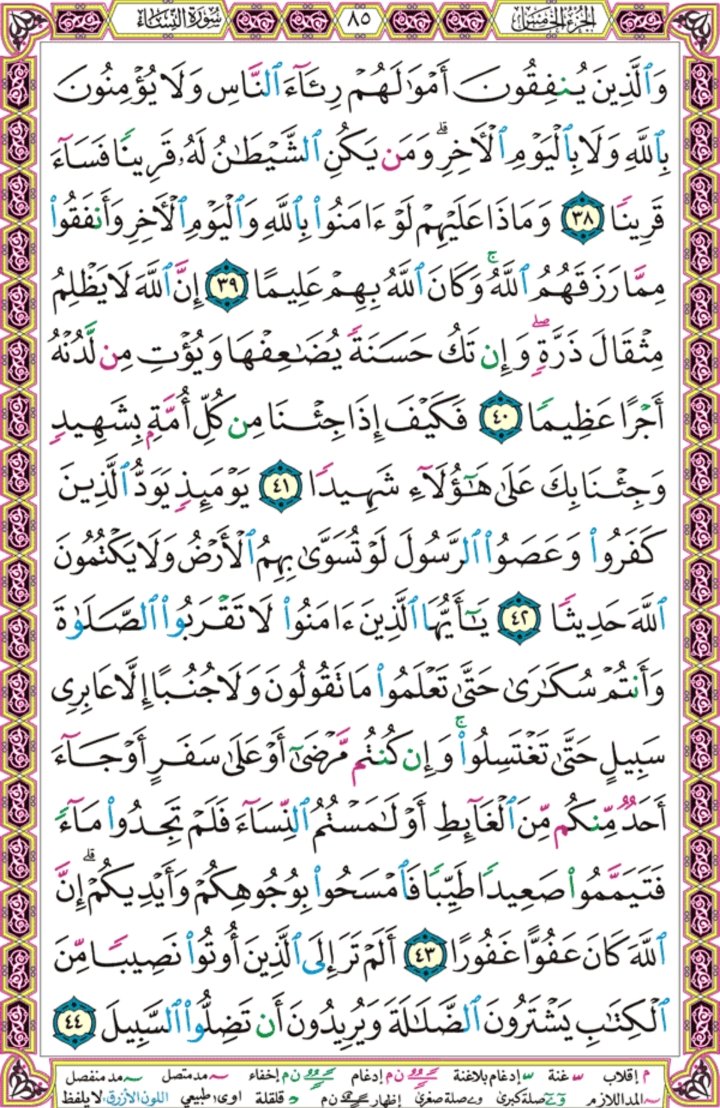 الجزء الخامس
٨٥
سورة النساء
وَٱلَّذِينَ يُنفِقُونَ أَمْوَٰلَهُمْ رِئَآءَ ٱلنَّاسِ وَلَا يُؤْمِنُونَ
بِٱللَّهِ وَلَا بِٱلْيَوْمِ ٱلْءَاخِرِ ۗ وَمَن يَكُنِ ٱلشَّيْطَٰنُ لَهُۥ قَرِينًا فَسَآءَ
قَرِينًا ٣٨ وَمَاذَا عَلَيْهِمْ لَوْ ءَامَنُوا۟ بِٱللَّهِ وَٱلْيَوْمِ ٱلْءَاخِرِ وَأَنفَقُوا۟
مِمَّا رَزَقَهُمُ ٱللَّهُ ۚ وَكَانَ ٱللَّهُ بِهِمْ عَلِيمًا ٣٩ إِنَّ ٱللَّهَ لَا يَظْلِمُ
مِثْقَالَ ذَرَّةٍ ۖ وَإِن تَكُ حَسَنَةً يُضَٰعِفْهَا وَيُؤْتِ مِن لَّدُنْهُ
أَجْرًا عَظِيمًا ٤٠ فَكَيْفَ إِذَا جِئْنَا مِن كُلِّ أُمَّةٍۭ بِشَهِيدٍ
وَجِئْنَا بِكَ عَلَىٰ هَٰٓؤُلَآءِ شَهِيدًا ٤١ يَوْمَئِذٍ يَوَدُّ ٱلَّذِينَ
كَفَرُوا۟ وَعَصَوُا۟ ٱلرَّسُولَ لَوْ تُسَوَّىٰ بِهِمُ ٱلْأَرْضُ وَلَا يَكْتُمُونَ
ٱللَّهَ حَدِيثًا ٤٢ يَٰٓأَيُّهَا ٱلَّذِينَ ءَامَنُوا۟ لَا تَقْرَبُوا۟ ٱلصَّلَوٰةَ
وَأَنتُمْ سُكَٰرَىٰ حَتَّىٰ تَعْلَمُوا۟ مَا تَقُولُونَ وَلَا جُنُبًا إِلَّا عَابِرِى
سَبِيلٍ حَتَّىٰ تَغْتَسِلُوا۟ ۚ وَإِن كُنتُم مَّرْضَىٰٓ أَوْ عَلَىٰ سَفَرٍ أَوْ جَآءَ
أَحَدٌ مِّنكُم مِّنَ ٱلْغَآئِطِ أَوْ لَٰمَسْتُمُ ٱلنِّسَآءَ فَلَمْ تَجِدُوا۟ مَآءً
فَتَيَمَّمُوا۟ صَعِيدًا طَيِّبًا فَٱمْسَحُوا۟ بِوُجُوهِكُمْ وَأَيْدِيكُمْ ۗ إِنَّ
ٱللَّهَ كَانَ عَفُوًّا غَفُورًا ٤٣ أَلَمْ تَرَ إِلَى ٱلَّذِينَ أُوتُوا۟ نَصِيبًا مِّنَ
ٱلْكِتَٰبِ يَشْتَرُونَ ٱلضَّلَٰلَةَ وَيُرِيدُونَ أَن تَضِلُّوا۟ ٱلسَّبِيلَ ٤٤
م إقلاب غنة إدغام بلاغنة ن م إدغام ن م إخفاء مد متصل مد منفصل
المد اللازم صلة كبرى صلة صغرى إظهار ن م قلقلة اوى طبيعي اللون الأزرق لا يلفظ